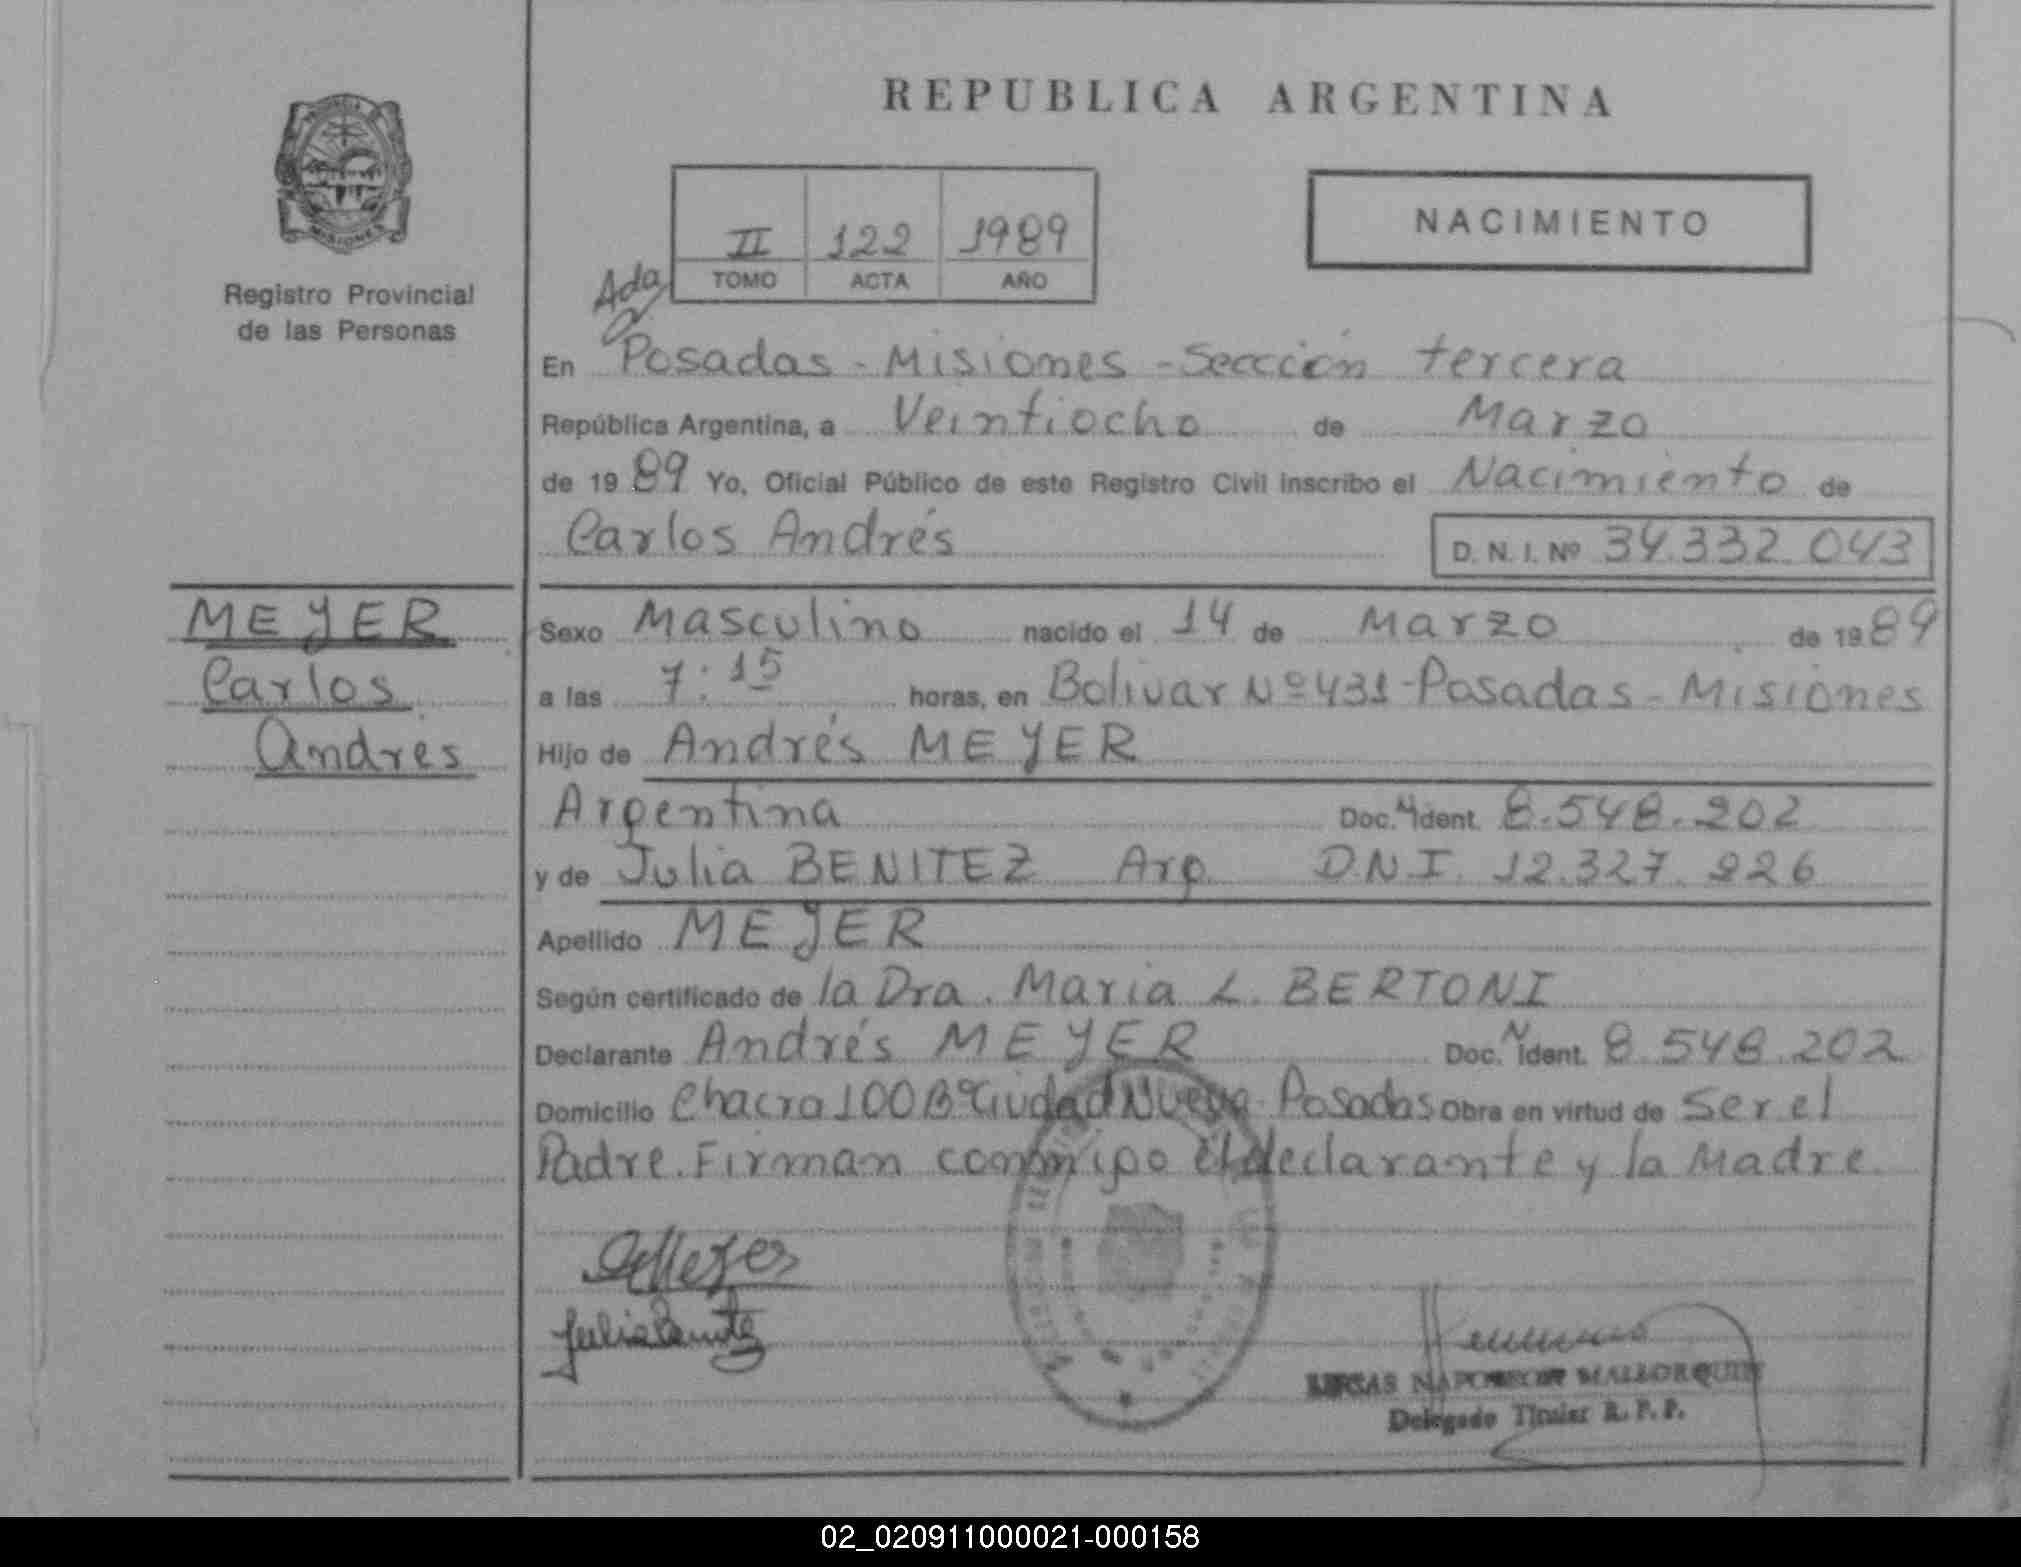 REPUBLICA ARGENTINA
MISIONES
Registro Provincial
de las Personas
II 122 1989
TOMO ACTA AÑO
NACIMIENTO
Ada
En Posadas - Misiones - Sección tercera
República Argentina, a Veintiocho de Marzo
de 1989 Yo, Oficial Público de este Registro Civil inscribo el Nacimiento de
Carlos Andrés D. N. I. Nº 34.332.043
MEYER
Carlos
Andres
Sexo Masculino nacido el 14 de Marzo de 1989
a las 7:15 horas, en Bolivar Nº 431 - Posadas - Misiones
Hijo de Andrés MEYER
Argentina Doc. N Ident. 8.548.202
y de Julia BENITEZ Arg. D.N.I. 12.327.226
Apellido MEYER
Según certificado de la Dra. Maria L. BERTONI
Declarante Andrés MEYER Doc. N Ident. 8.548.202
Domicilio Chacra 100 Bº Ciudad Nueva - Posadas Obra en virtud de Ser el
Padre. Firman conmigo el declarante y la Madre.
AMeyer
Julia Benitez
NAPOLEON MALLORQUIN
Delegado Titular R. P. P.
02_020911000021-000158